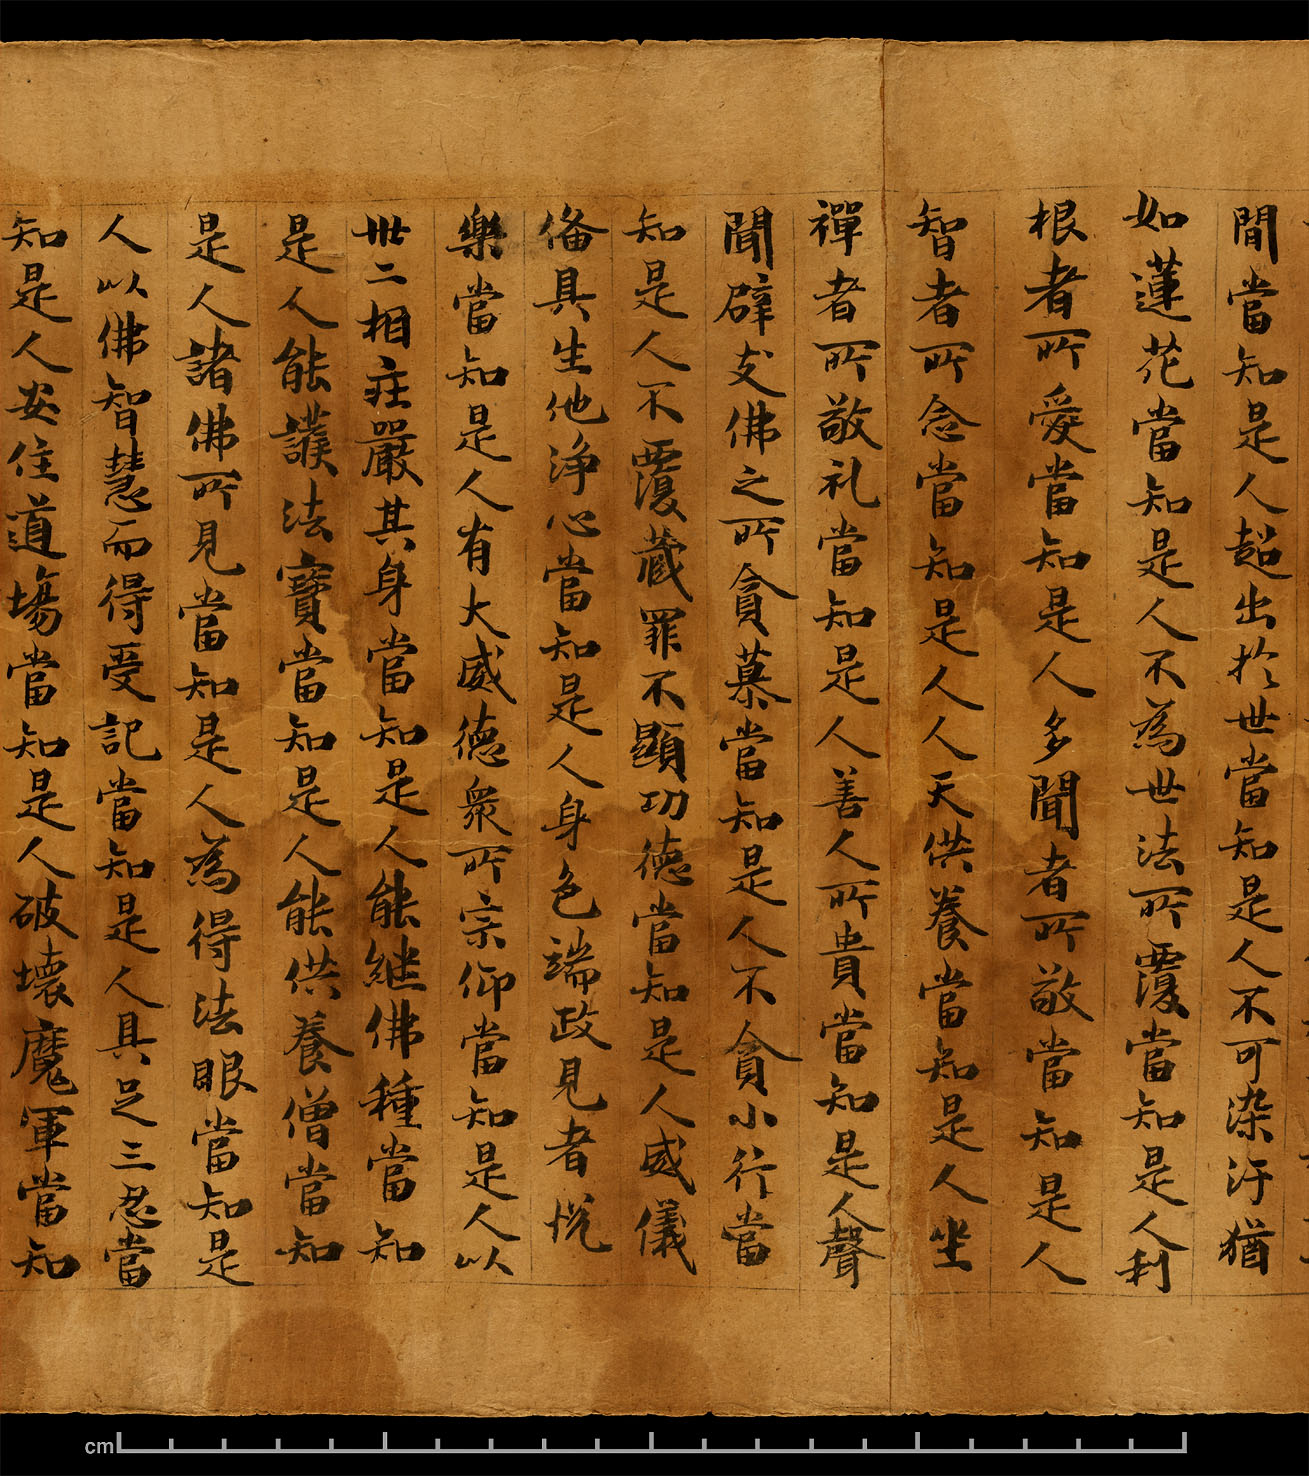 間當知是人超出於世當知是人不可染汙猶
如蓮花當知是人不為世法所覆當知是人利
根者所愛當知是人多聞者所敬當知是人
智者所念當知是人人天供養當知是人坐
禪者所敬礼當知是人善人所貴當知是人聲
聞辟支佛之所貪慕當知是人不貪小行當
知是人不覆藏罪不顯功德當知是人威儀
俻具生他淨心當知是人身色端政見者悅
樂當知是人有大威德衆所宗仰當知是人以
卅二相庄嚴其身當知是人能継佛種當知
是人能護法寶當知是人能供養僧當知
是人諸佛所見當知是人為得法眼當知是
人以佛智慧而得受記當知是人具足三忍當
知是人安住道場當知是人破壞魔軍當知
cm